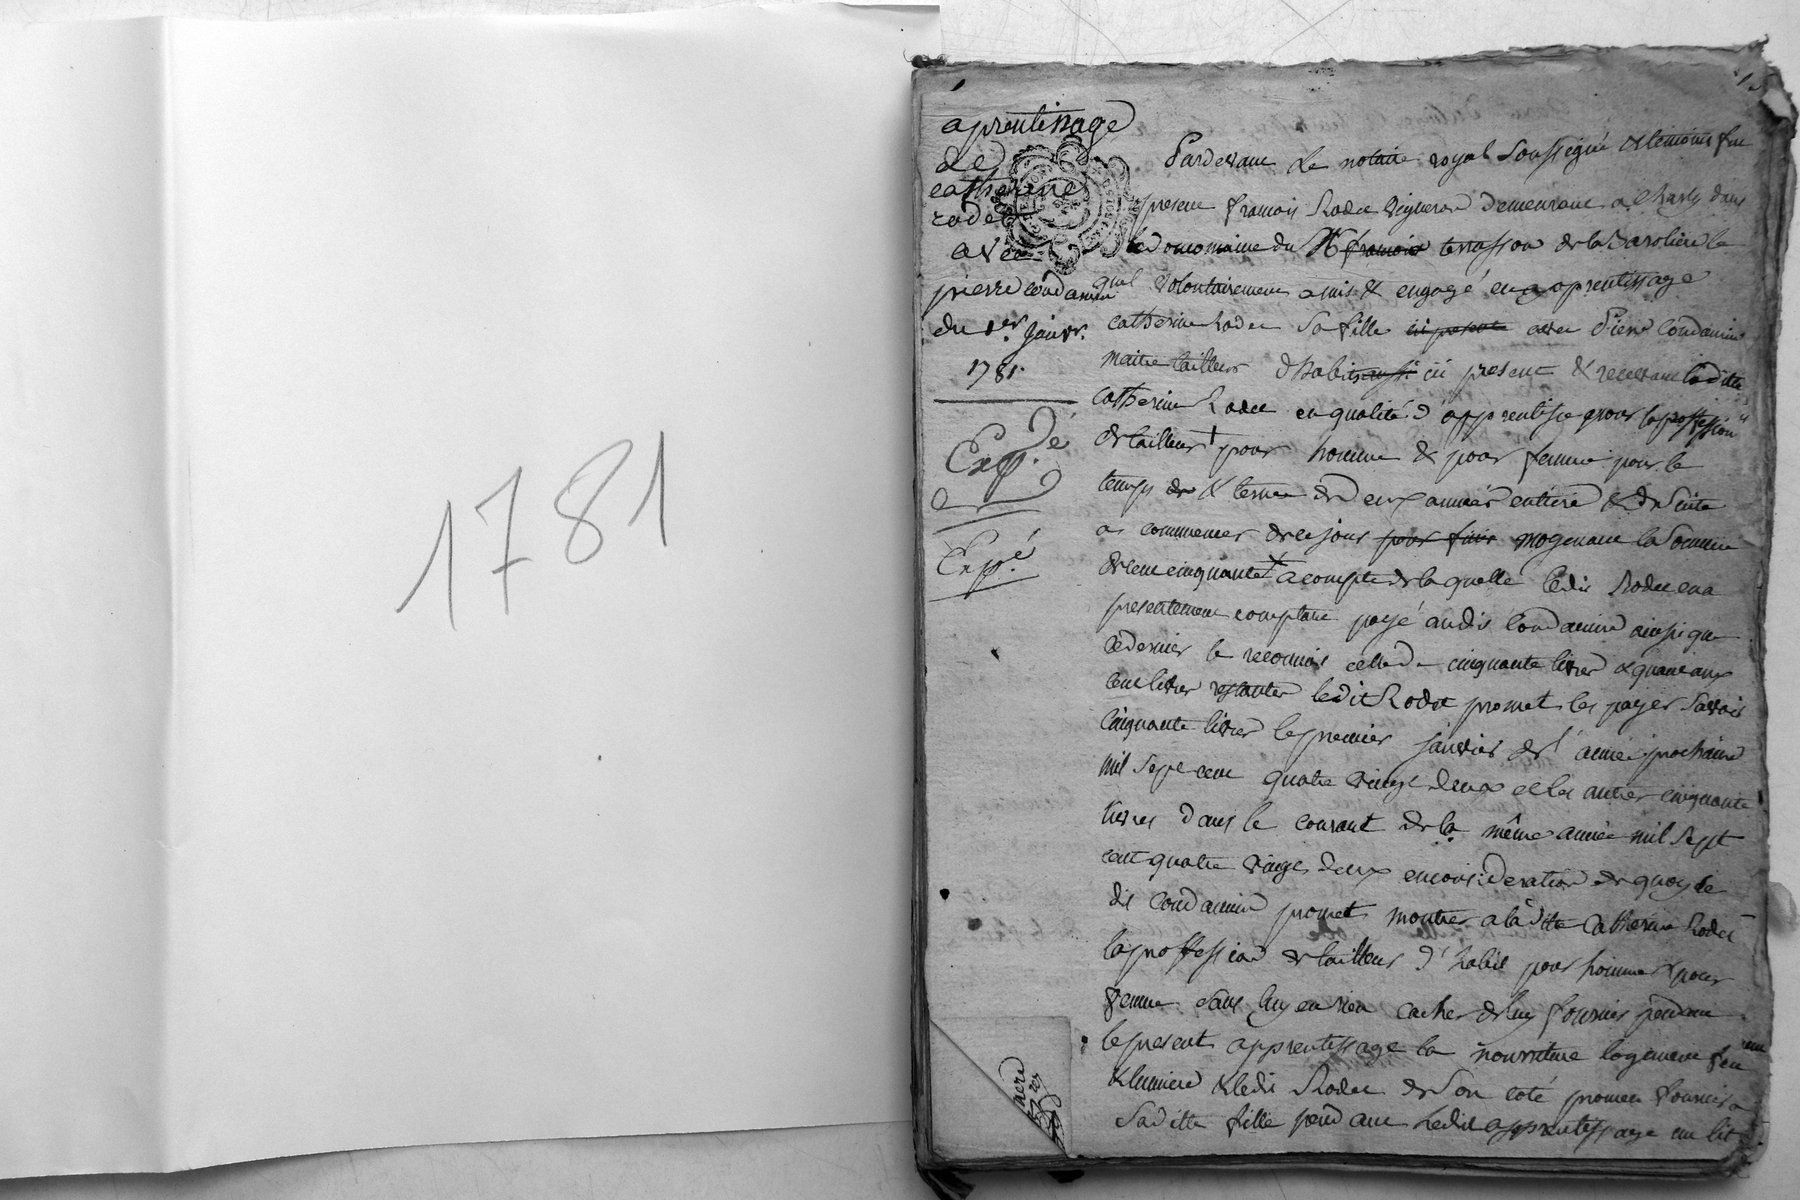 1781
1
15
aprentissage
de
catherine
rodet
avec
pierre condamin
du 1er. janvr.
1781.
Expdé
Expé.
Pardevant Le notaire royal soussigné & temoins fut
present francois Rodet vigneron demeurant a Charly dans
le domomaine du Sr francois terrasson de la Barolière le
quel volontairement a mis & engagé en apprentissage
catherine Rodet sa fille ici presente avec Pierre Condamin
maitre tailleur d'habits aussi ici present & recevant laditte
Catherine Rodet en qualité d'apprentisse pour la proffession
de tailleur + pour homme & pour femme pour le
temps de & terme de deux années entiere & de suitte
a commencer de ce jour pour finir mogenant la somme
de cent cinquante + a compte de la quelle ledit Rodet en a
presentement comptant payé audit Condamin ainsi que
ce dernier le reconnoit celle de cinquante livres & quant aux
cent livres restantes ledit Rodet promet les payer savoir
cinquante livres le premier janvier de l'année prochaine
mil sept cent quatre vingt deux et les autres cinquante
livres dans le courant de la même année mil sept
cent quatre vingt deux en consideration de quoy le
dit Condamin promet montrer a la ditte Catherine Rodet
la proffession de tailleur d'habit pour homme & pour
femme sans luy en rien cacher de luy fournir pendant
le present apprentissage la nourriture logement feu
& lumiere & ledit Rodet de son coté promet fournir a
saditte fille pendant ledit apprentissage un lit